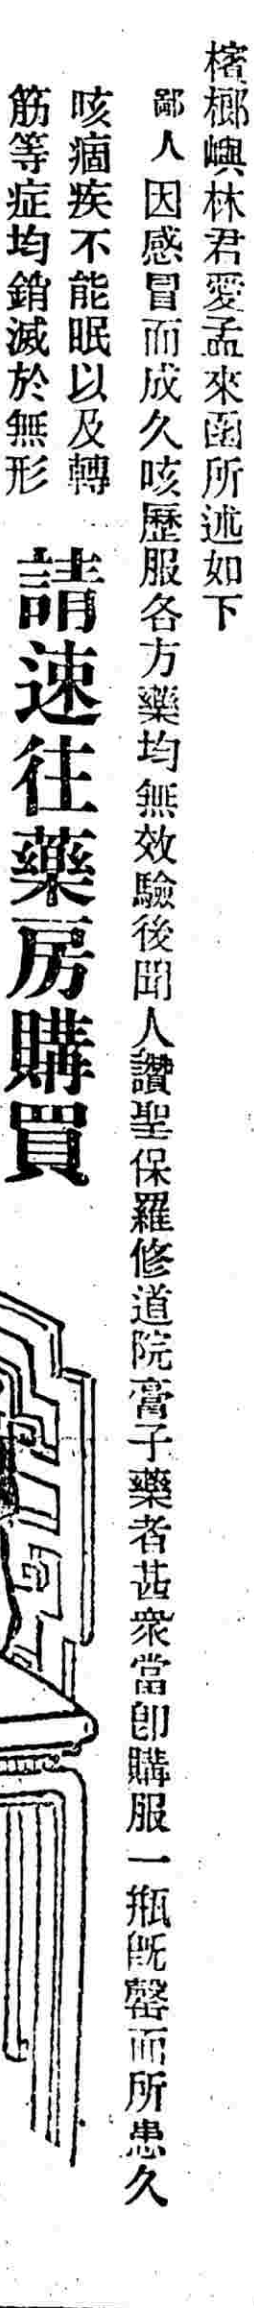 檳榔嶼林君愛孟來函所述如下
鄙人因感冒而成久咳歷服各方藥均無效驗後聞人讚聖保羅修道院膏子藥者甚衆當卽購服一瓶旣罄而所患久
咳痼疾不能眠以及轉
筋等症均銷滅於無形
請速往藥房購買